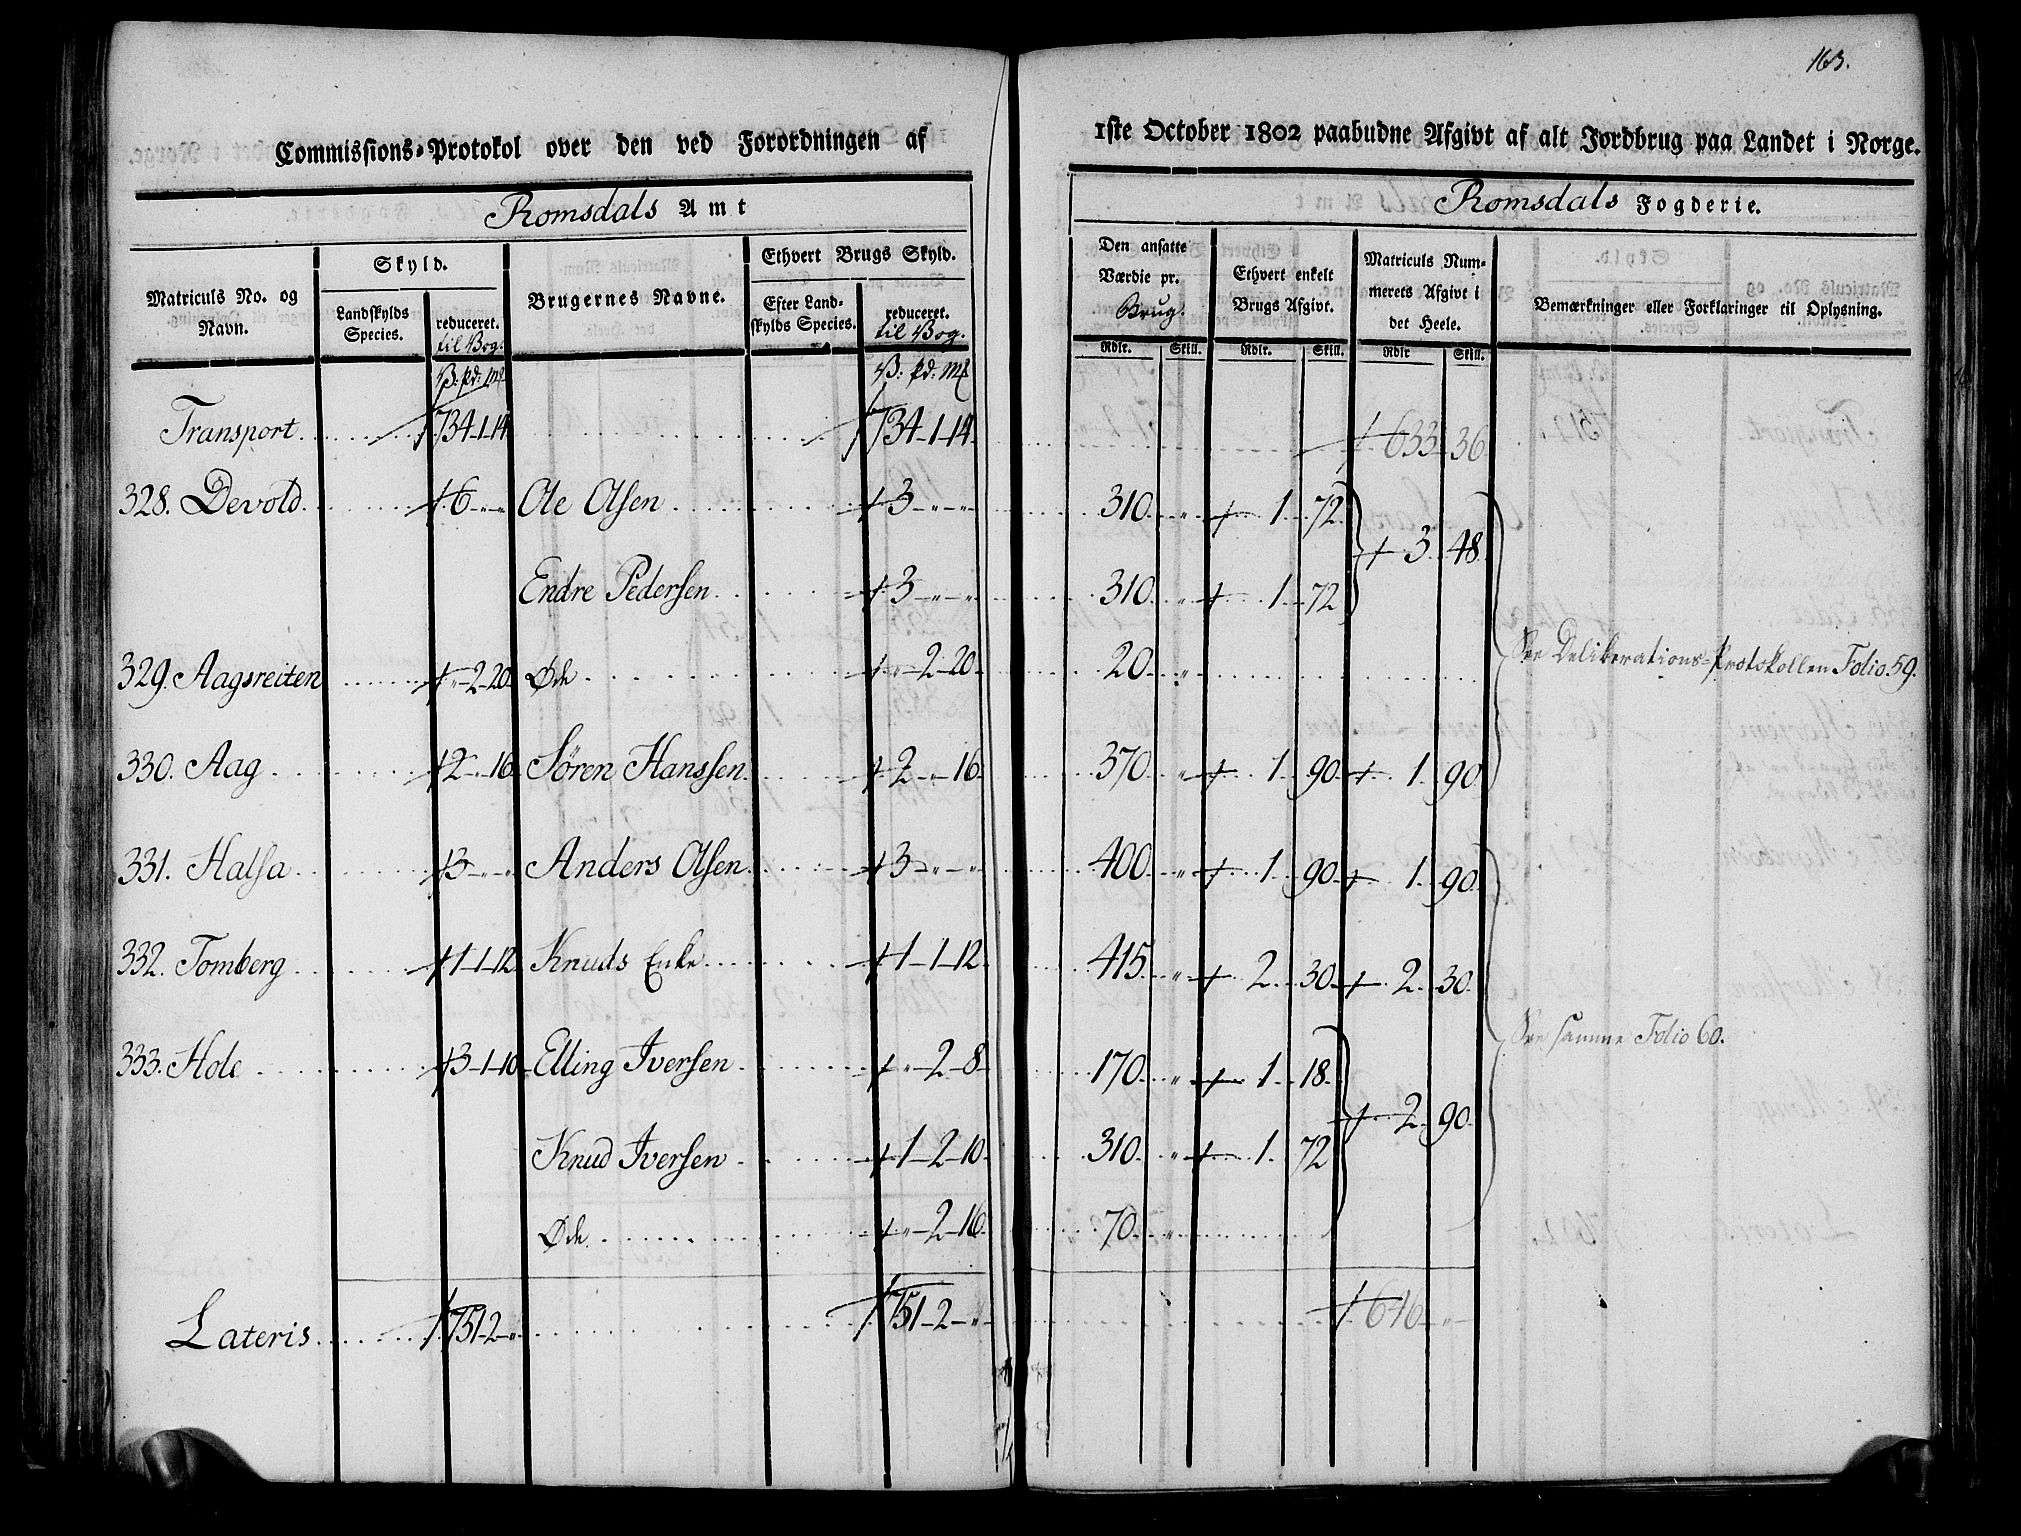 163.
Commissions-Protokol over den ved Forordningen af 1ste October 1802 paabudne Afgivt af alt Jordbrug paa Landet i Norge.
Romsdals Amt Romsdals Fogderie.
Matriculs No. og Navn. Skyld. Landskylds Species. reduceret. til Vog. Brugernes Navne. Ethvert Brugs Skyld. Efter Landskylds Species. reduceret. til Vog. Den ansatte Værdie pr. Brug. Ethvert enkelt Brugs Afgivt. Matriculs Nummerets Afgivt i det Heele. Bemærkninger eller Forklaringer til Oplysning.
V: pd: Mk V: pd: Mk Rdlr. Skill. Rdlr. Skill. Rdlr Skill.
Transport 1734-1-14 1734-1-14 633 36
328. Devold 6 - „ - „ Ole Olsen 3 - „ - „ 310 „ 1 72 3 48
Endre Pedersen 3 - „ - „ 310 „ 1 72
329. Aagsreiten „ -2-20 Øde „ -2-20 20 „ See Deliberations-Protokollen Folio 59.
330. Aag 2 - „ -16 Sören Hanssen 2 - „ -16 370 „ 1 90 1 90
331. Halsa 3 - „ - „ Anders Olsen 3 - „ - „ 400 „ 1 90 1 90
332. Tomberg 1-1-12 Knuds Enke 1-1-12 415 „ 2 30 2 30
333. Hole 3-1-10 Elling Iversen „ -2-8 170 „ 1 18 2 90 See samme Folio 60.
Knud Iversen 1-2-10 310 „ 1 72
Øde „ -2-16 70 „
Lateris 1751-2- „ 1751-2- „ 646 „